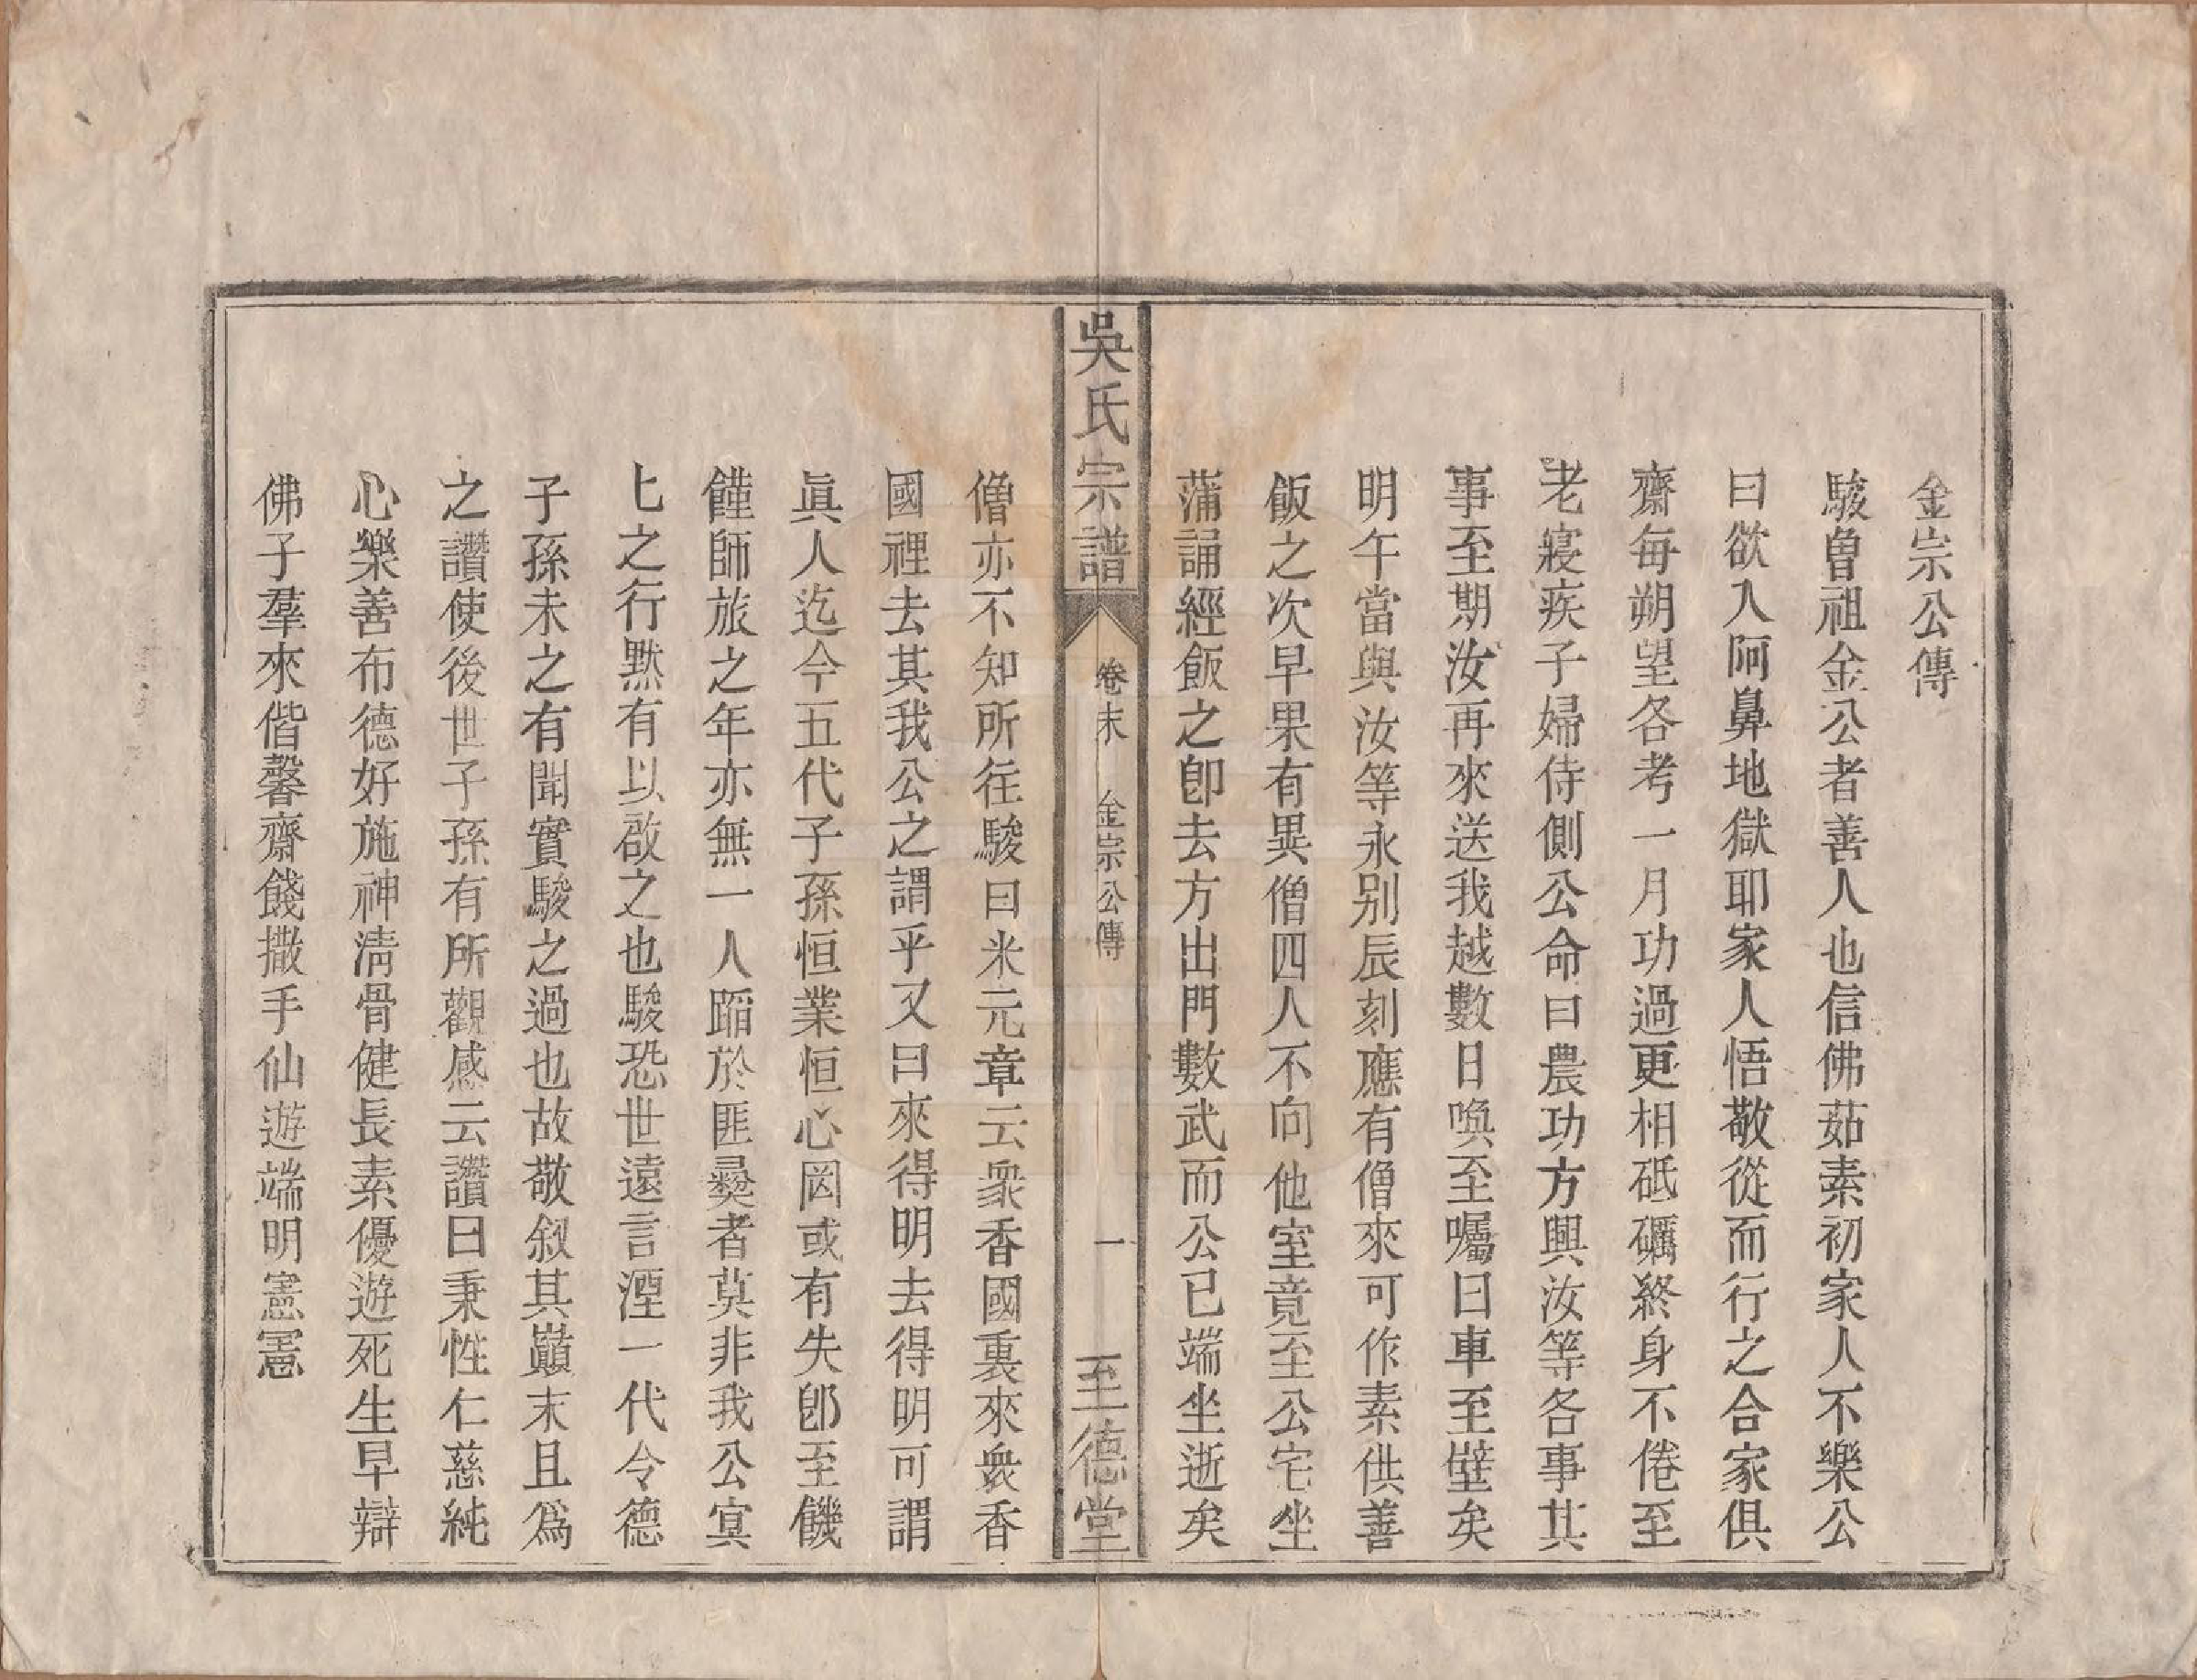 金宗公傳
駿曾祖金公者善人也信佛茹素初家人不樂公
曰欲入阿鼻地獄耶家人悟敬從而行之合家俱
齋每朔望各考一月功過更相砥礪終身不倦至
老寢疾子婦侍側公命曰農功方興汝等各事其
事至期汝再來送我越數日喚至囑曰車至壁矣
明午當與汝等永別辰刻應有僧來可作素供善
飯之次早果有異僧四人不向他室竟至公宅坐
蒲誦經飯之卽去方出門數武而公已端坐逝矣
吳氏宗譜
卷末
金宗公傳
一
至德堂
僧亦不知所往駿曰米元章云衆香國裏來衆香
國裡去其我公之謂乎又曰來得明去得明可謂
眞人迄今五代子孫恒業恒心罔或有失卽至饑
饉師旅之年亦無一人蹈於匪彝者莫非我公冥
七之行黙有以啟之也駿恐世遠言湮一代令德
子孫未之有聞實駿之過也故敬叙其巔末且爲
之讚使後世子孫有所觀感云讚曰秉性仁慈純
心樂善布德好施神淸骨健長素優遊死生早辯
佛子羣來偕馨齋餞撒手仙遊端明憲憲